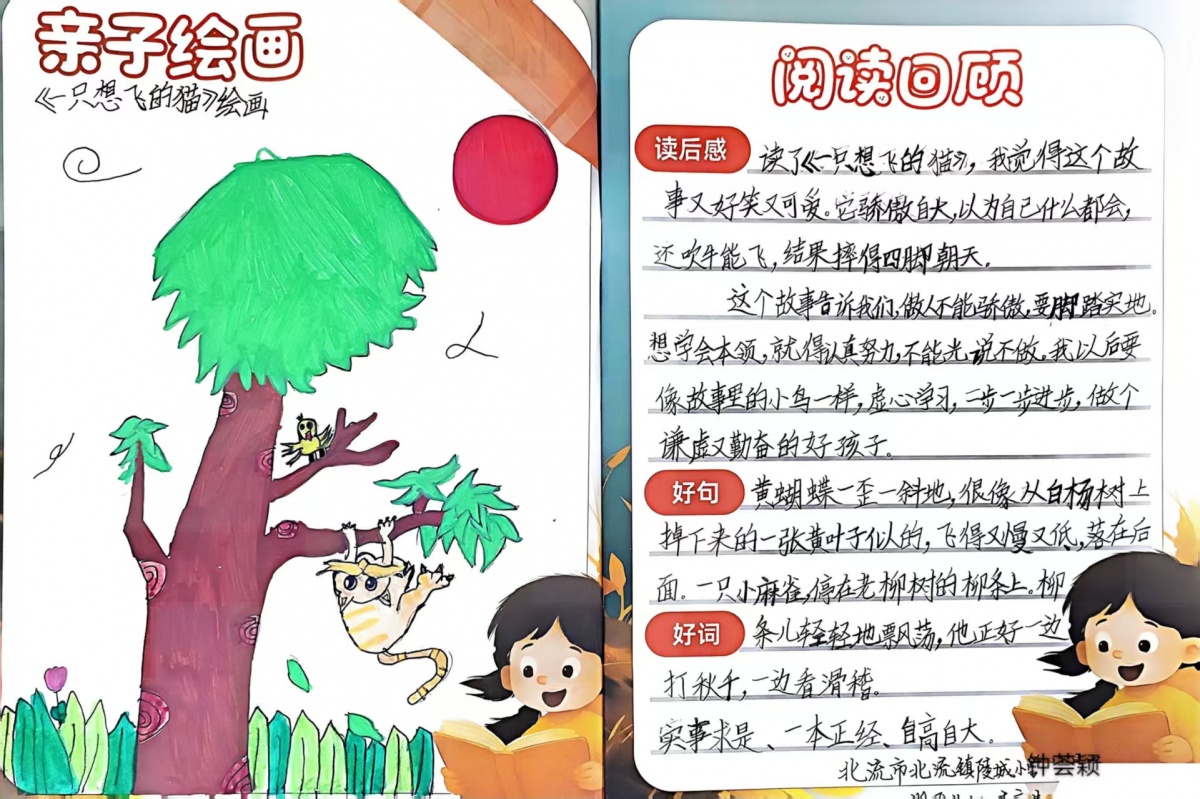 亲子绘画
《一只想飞的猫》绘画
阅读回顾
读后感
读了《一只想飞的猫》，我觉得这个故
事又好笑又可爱。它骄傲自大，以为自己什么都会，
还吹牛能飞，结果摔得四脚朝天。
这个故事告诉我们，做人不能骄傲，要脚踏实地。
想学会本领，就得认真努力，不能光说不做。我以后要
像故事里的小鸟一样，虚心学习，一步一步进步，做个
谦虚又勤奋的好孩子。
好句
黄蝴蝶一歪一斜地，很像从白杨树上
掉下来的一张黄叶子似的，飞得又慢又低，落在后
面。一只小麻雀，停在老柳树的柳条上。柳
好词
条儿轻轻地飘荡，他正好一边
打秋千，一边看滑稽。
实事求是、一本正经、自高自大。
北流市北流镇陵城小学
钟荟颖